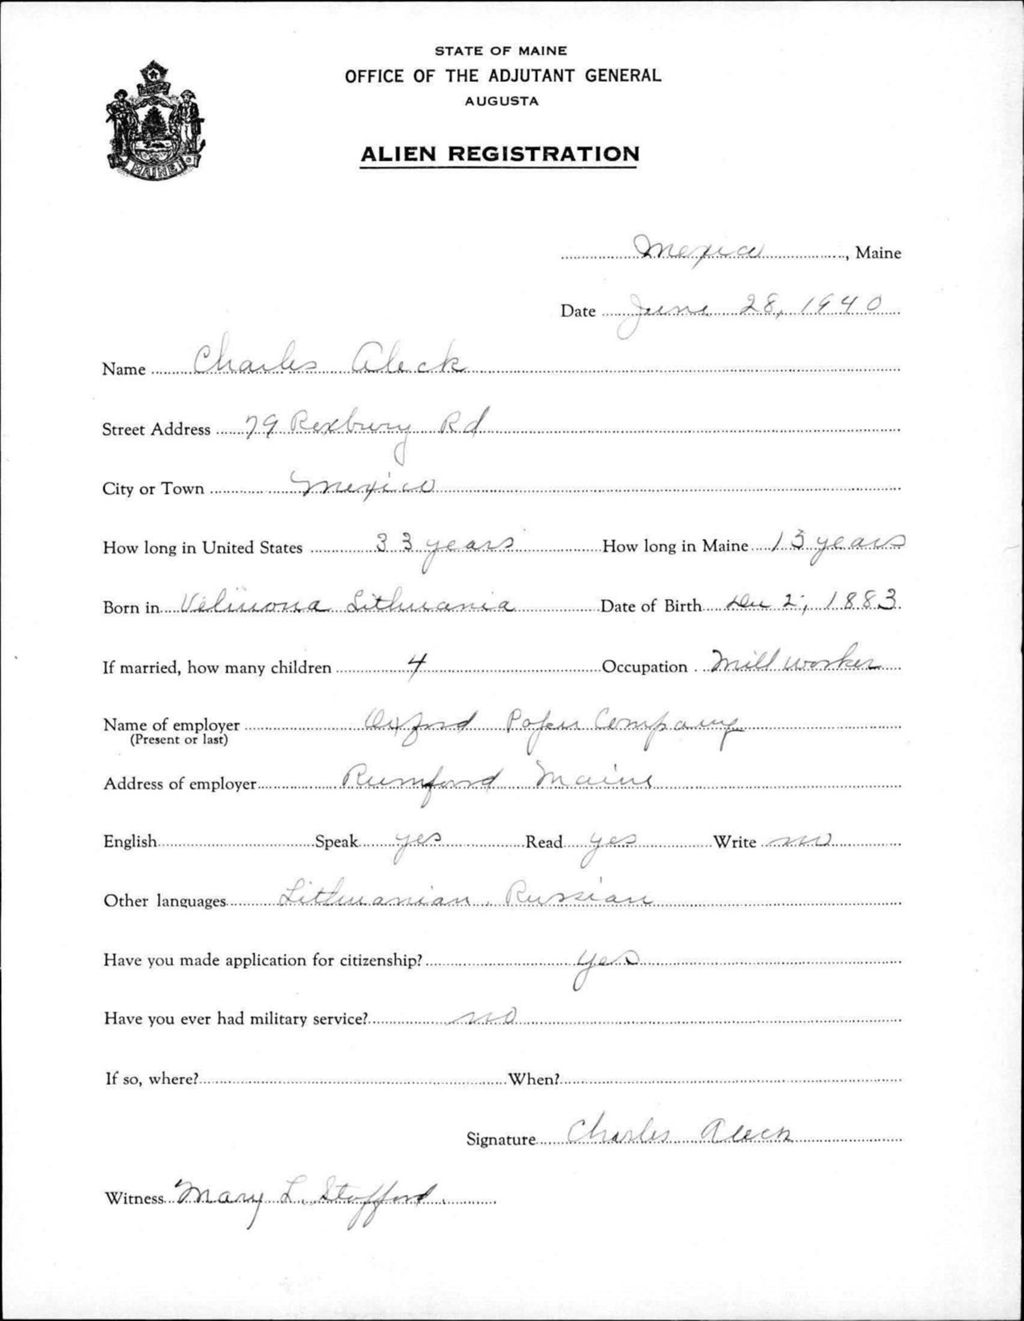 STATE OF MAINE
OFFICE OF THE ADJUTANT GENERAL
AUGUSTA
ALIEN REGISTRATION
MAINE
Mexico, Maine
Date June 28, 1940
Name Charles Aleck
Street Address 79 Roxbury Rd
City or Town Mexico
How long in United States 33 years How long in Maine 13 years
Born in Lithuania Date of Birth Dec 2, 1883
If married, how many children 4 Occupation Mill worker
Name of employer Oxford Paper Company
(Present or last)
Address of employer Rumford Maine
English Speak yes Read yes Write no
Other languages Lithuanian, Russian
Have you made application for citizenship? yes
Have you ever had military service? no
If so, where? When?
Signature Charles Aleck
Witness Mary L. Stafford